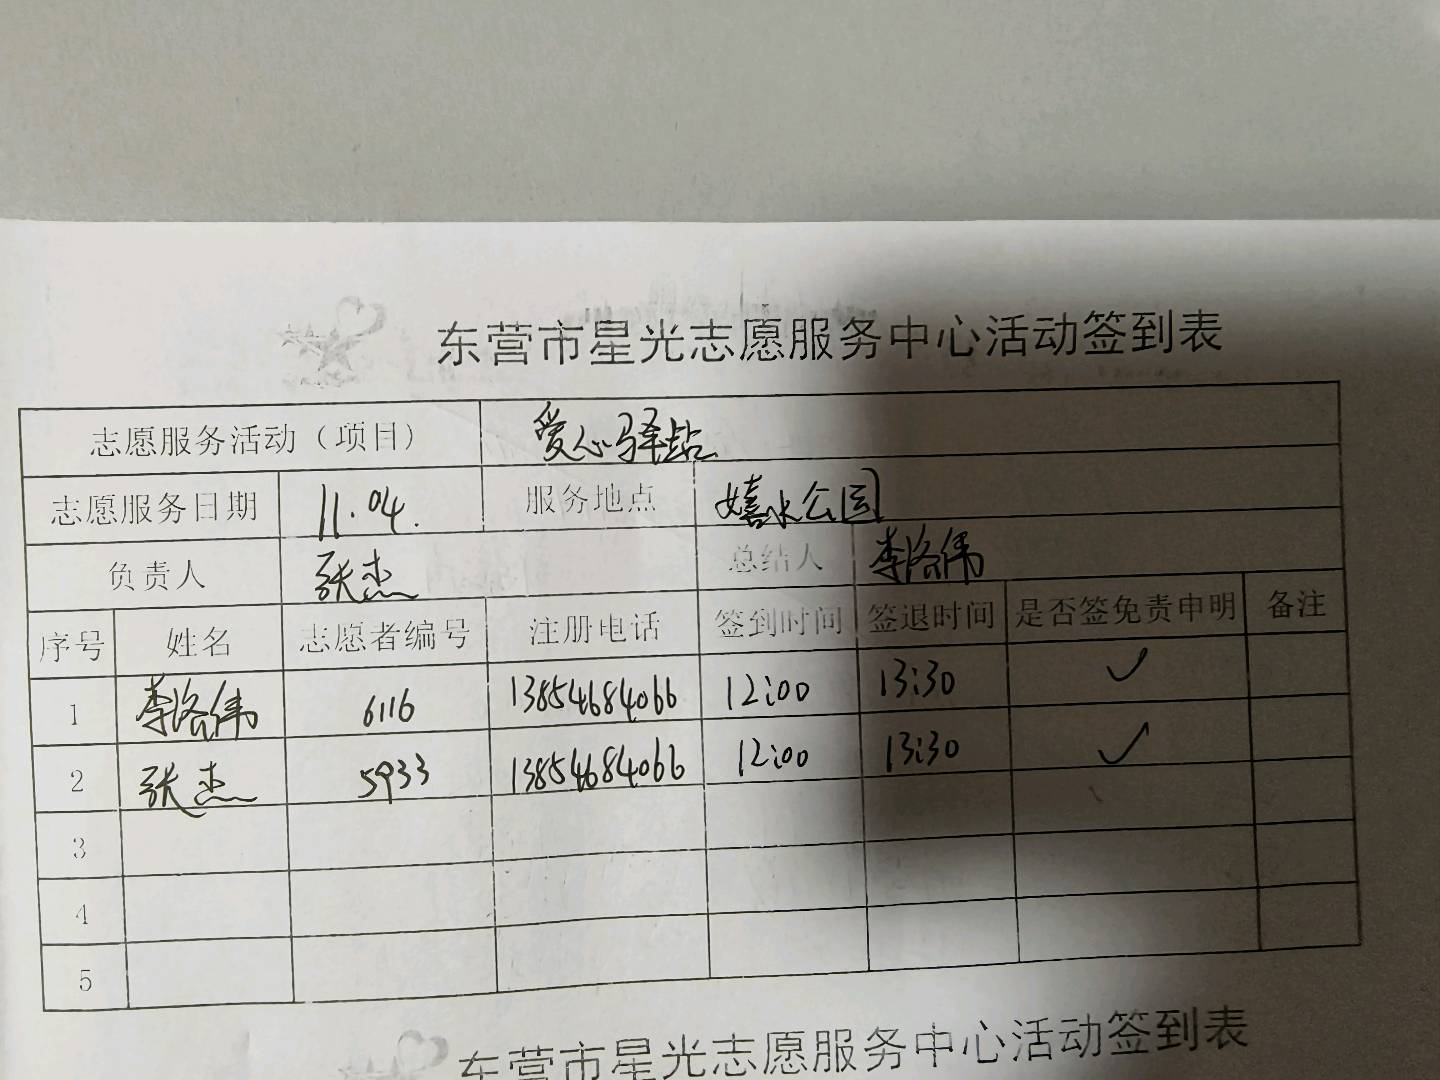 东营市星光志愿服务中心活动签到表
志愿服务活动（项目） 爱心驿站
志愿服务日期 11.04. 服务地点 嬉水公园
负责人 张杰 总结人 李洛伟
序号 姓名 志愿者编号 注册电话 签到时间 签退时间 是否签免责申明 备注
1 李洛伟 6116 13854684066 12:00 13:30 ✓
2 张杰 5933 13854684066 12:00 13:30 ✓
3
4
5
东营市星光志愿服务中心活动签到表